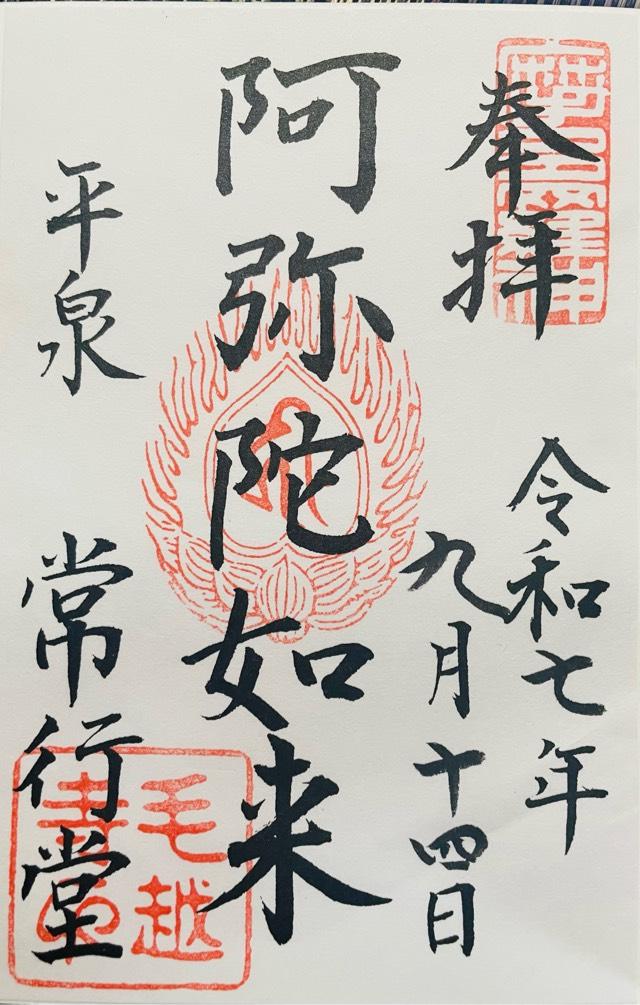 奉拝
令和七年
九月十四日
阿弥陀如来
平泉
常行堂
毛越
寺印